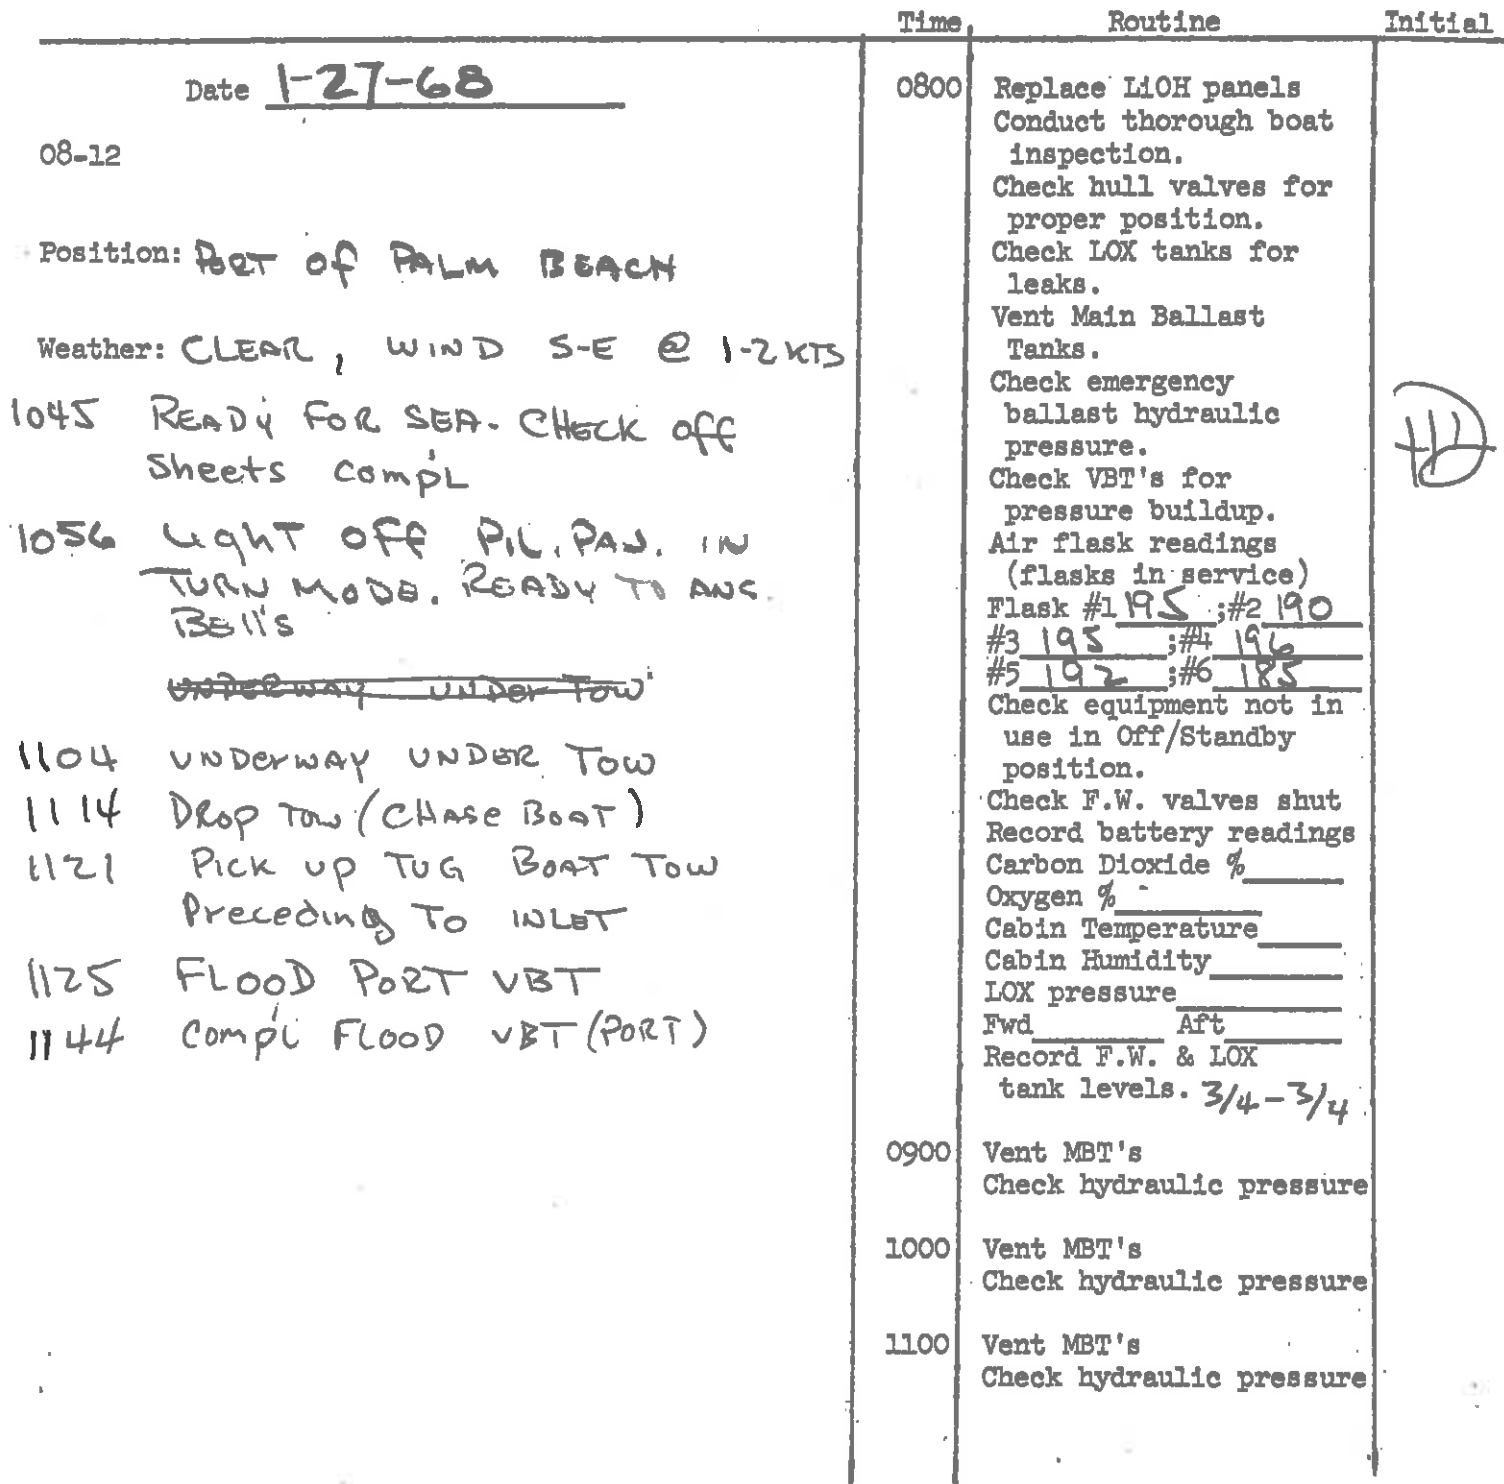 Time Routine Initial
Date 1-27-68
08-12
Position: PORT of PALM BEACH
Weather: CLEAR, WIND S-E @ 1-2 KTS
1045 READY FOR SEA. CHECK off
Sheets compl
1056 Light OFF PIL. PAN. IN
TURN MODE. READY TO ANS.
BEll's
UNDERWAY UNDer Tow
1104 UNDerWAY UNDER TOW
1114 DROP TOW (CHASE BOAT)
1121 PICK UP TUG BOAT TOW
Preceding TO INLET
1125 FLOOD PORT VBT
1144 Compl FLOOD VBT (PORT)
0800 Replace LiOH panels
Conduct thorough boat
inspection.
Check hull valves for
proper position.
Check LOX tanks for
leaks.
Vent Main Ballast
Tanks.
Check emergency
ballast hydraulic
pressure.
Check VBT's for
pressure buildup.
Air flask readings
(flasks in service)
Flask #1 195 ;#2 190
#3 195 ;#4 196
#5 192 ;#6 185
Check equipment not in
use in Off/Standby
position.
Check F.W. valves shut
Record battery readings
Carbon Dioxide %
Oxygen %
Cabin Temperature
Cabin Humidity
LOX pressure
Fwd Aft
Record F.W. & LOX
tank levels. 3/4-3/4
0900 Vent MBT's
Check hydraulic pressure
1000 Vent MBT's
Check hydraulic pressure
1100 Vent MBT's
Check hydraulic pressure